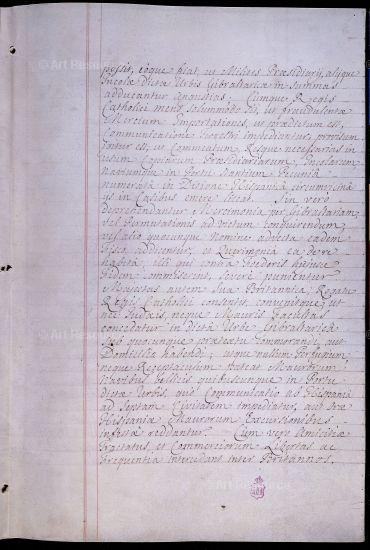 possit, eoque fiat, ut Milites Præsidiarij, alijque
Incolæ dictæ Urbis Gibraltaricæ in summas
adducantur angustias. Cumque Regis
Catholici mens solummodo sit, ut fraudulentæ
Mercium Importationes, ut prædictum est,
Communicatione Terrestri impediantur, provisum
igitur est, ut Commeatum, Resque necessarias in
usum Copiarum Præsidiariarum, Incolarum
Naviumque in Portu stantium Pecunia
numerata in Ditione Hispanica circumvicina
ijs in Casibus emere liceat. Sin vero
deprehendantur Mercimonia per Gibraltariam,
vel Permutationis ad victum conquirendum,
vel alio quocunque nomine advecta eadem
Fisco addicentur, et Querimonia ea de re
habita, illi qui contra Foederis hujusce
fidem commiserint, severe punientur
Majestas autem Sua Britannica, Rogatu
Regis Catholici consentit, convenitque, ut
nec Judæis, neque Mauris Facultas
concedatur in dicta Urbe Gibraltarica
sub quocunque prætextu Commorandi, aut
Domicilia habendi; utque nullum Perfugium,
neque Receptaculum pateat Maurorum
Navibus bellicis quibuscunque in Portu
dictæ Urbis, quo Communicatio ab Hispania
ad Septam Civitatem impediatur, aut Oræ
Hispaniæ Maurorum Excursionibus
infestæ reddantur. Cum vero Amicitiæ
Tractatus, et Commerciorum Libertas ac
Frequentia intercedant inter Britannos,